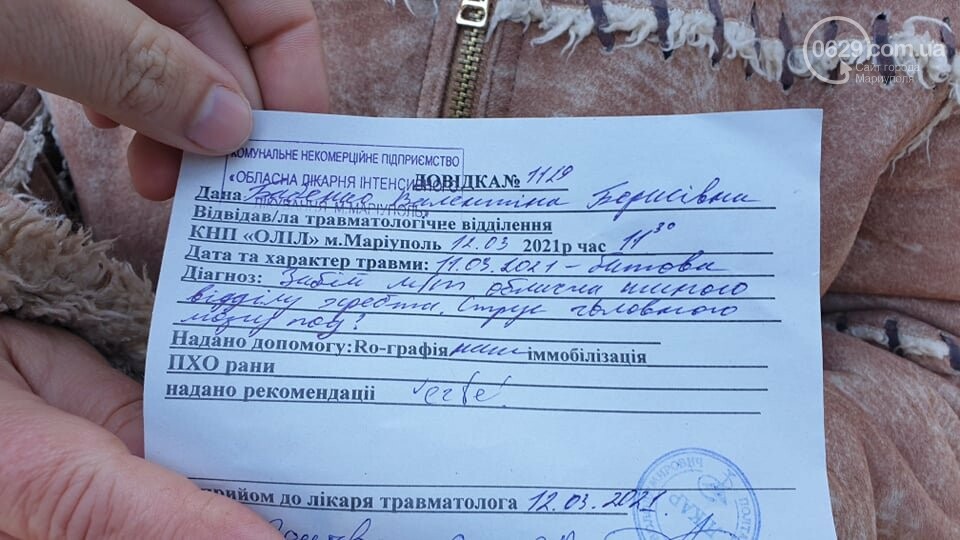 0629.com.ua
Сайт города
Мариуполя
КОМУНАЛЬНЕ НЕКОМЕРЦІЙНЕ ПІДПРИЄМСТВО
«ОБЛАСНА ЛІКАРНЯ ІНТЕНСИВНОГО
М. МАРІУПОЛЬ»
ДОВІДКА№ 1129
Дана Валентина Борисівна
Відвідав/ла травматологічне відділення
КНП «ОЛІЛ» м.Маріуполь 12.03 2021р час 11 30
Дата та характер травми: 11.03.2021 – битова
Діагноз: Забій м/т обличчя шийного
відділу хребта. Струс головного
мозку под?
Надано допомогу:Ro-графія іммобілізація
ПХО рани
надано рекомендації
прийом до лікаря травматолога 12.03.2021